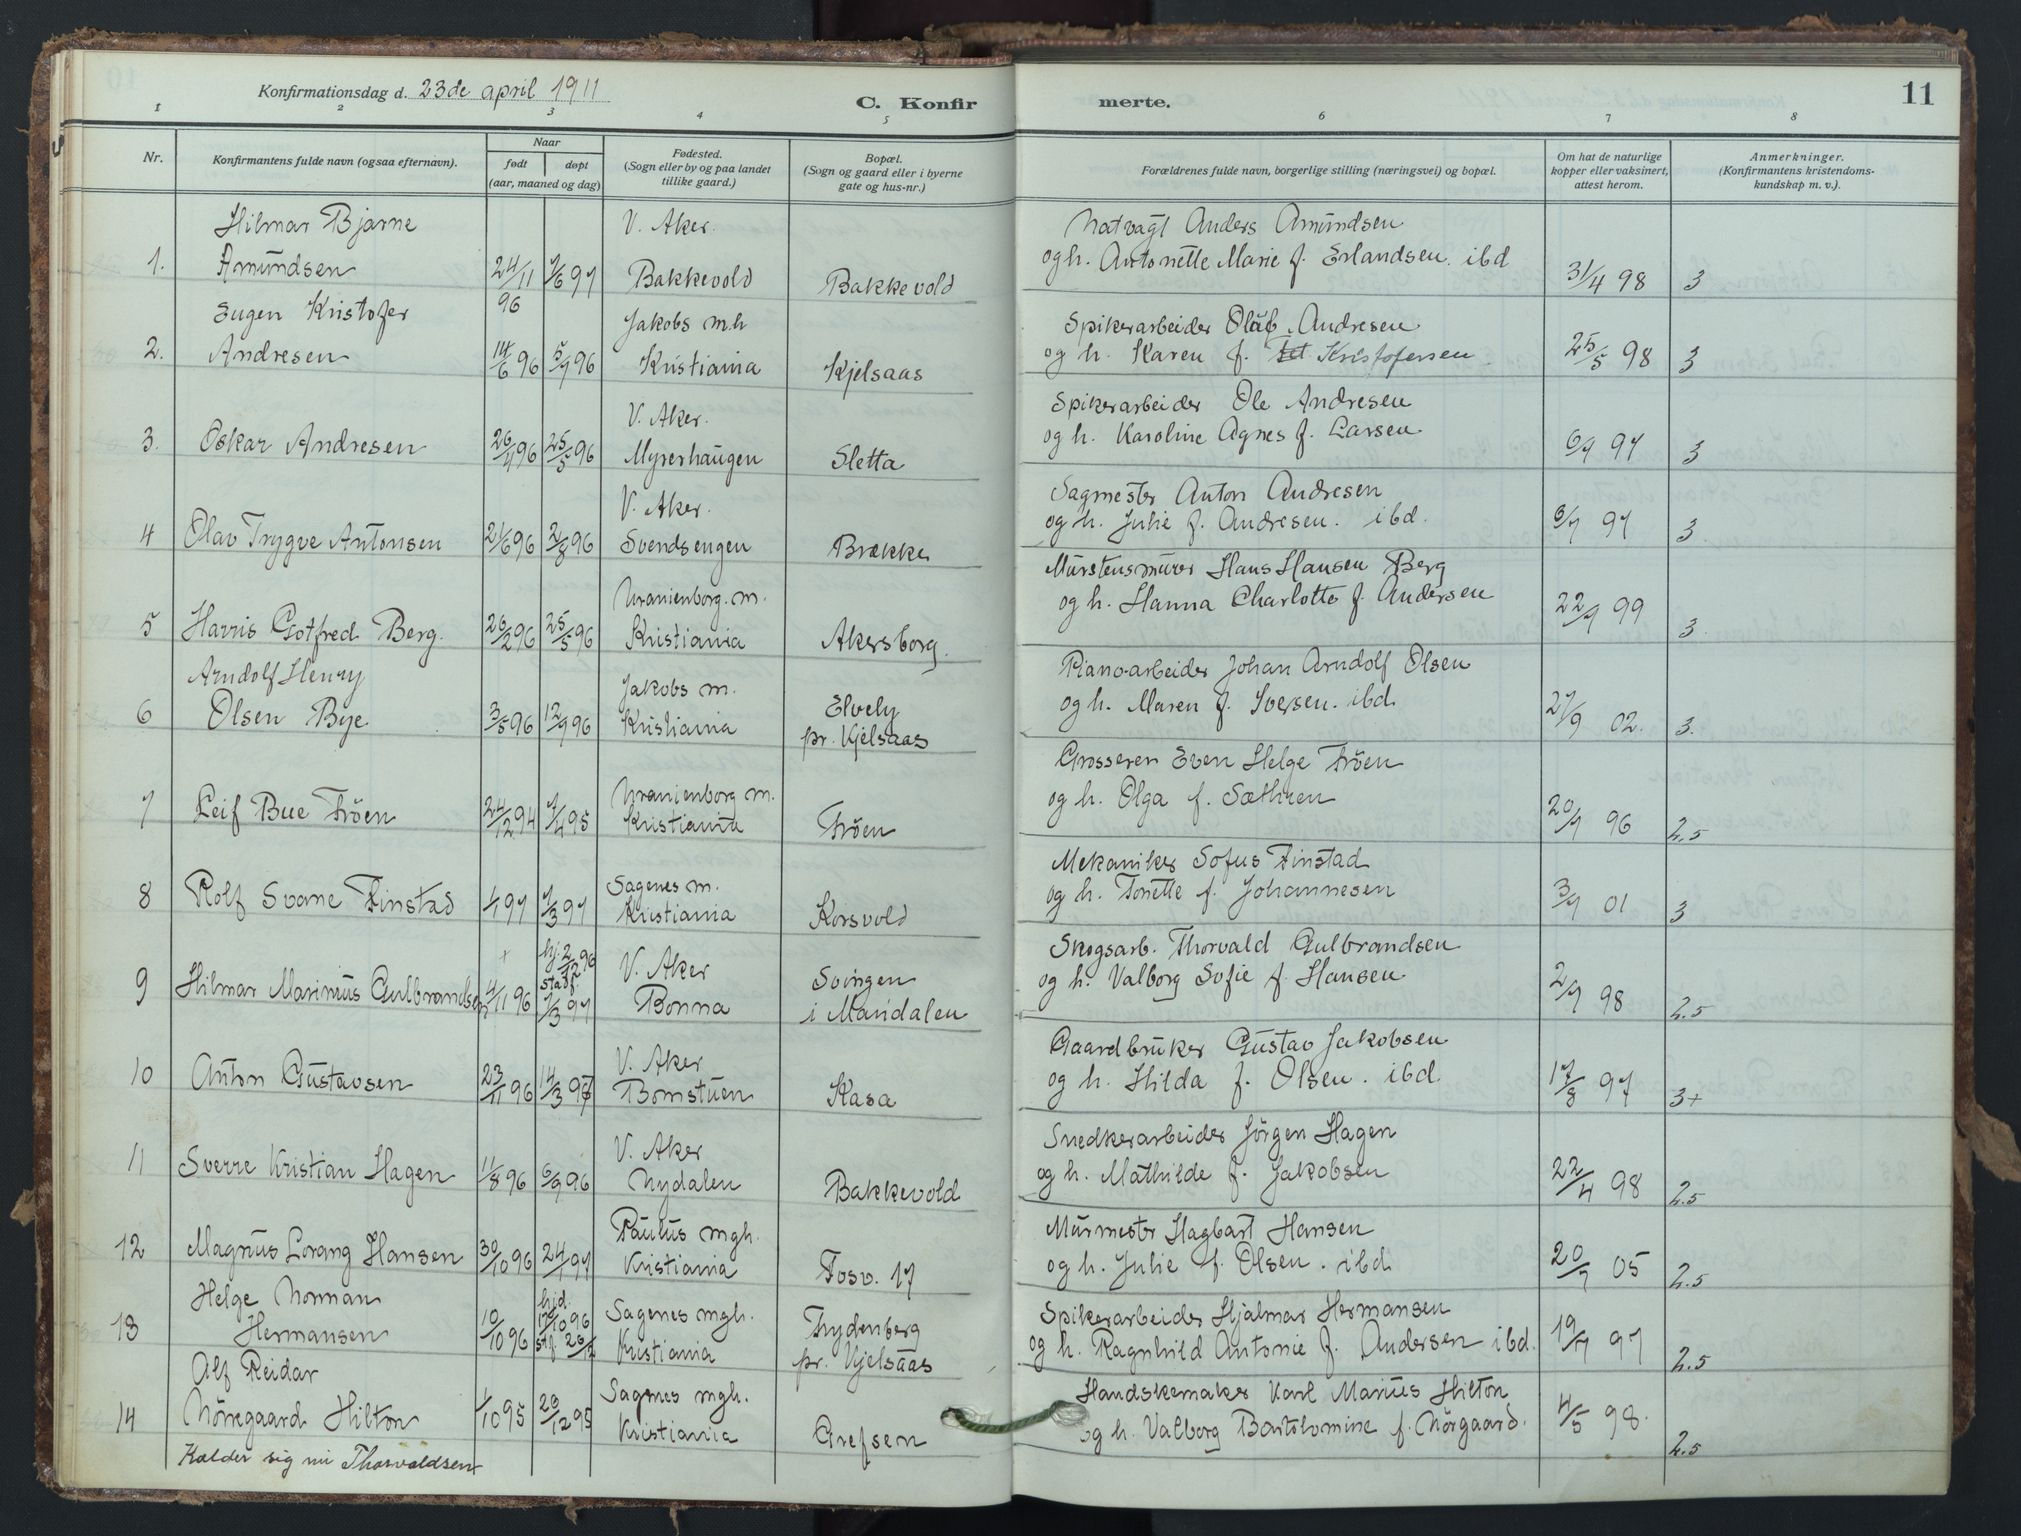 Konfirmationsdag d. 23de april 1911
C. Konfir
1 2 3 4 5
Nr.
Konfirmantens fulde navn (ogsaa efternavn).
Naar
født døpt
(aar, maaned og dag)
Fødested.
(Sogn eller by og paa landet
tillike gaard.)
Bopæl.
(Sogn og gaard eller i byerne
gate og hus-nr.)
Hilmar Bjarne V. Aker.
1. Amundsen 24/11 96 7/6 97 Bakkevold Bakkevold
Eugen Kristofer Jakobs m.h
2. Andresen 14/6 96 5/7 96 Kristiania Kjelsaas
V. Aker.
3. Oskar Andresen 26/4 96 25/5 96 Myrerhaugen Sletta
V. Aker.
4 Olav Trygve Antonsen 21/6 96 2/8 96 Svendsengen Brække
Uranienborg. m.
5 Harris Gotfred Berg. 26/2 96 25/5 96 Kristiania Akersborg.
Arndolf Henry Jakobs m. Elvely
6 Olsen Bye 3/5 96 12/7 96 Kristiania pr. Kjelsaas
Uranienborg m.
7 Leif Bue Fröen 24/12 94 7/4 95 Kristiania Fröen
Sagenes m.
8 Rolf Svane Finstad 97 7/3 97 Kristiania Korsvold
+ hj. 2/12 96 V. Aker Svingen
stadf.
9 Hilmar Marinius Gulbrandsen 4/11 96 7/3 97 Bonna i Maridalen
V. Aker
10 Anton Gustavsen 23/11 96 14/3 97 Bomstuen Kasa
V. Aker
11 Sverre Kristian Hagen 11/8 96 6/9 96 Nydalen Bakkevold
Paulus mgh.
12 Magnus Lorang Hansen 30/10 96 24/1 97 Kristiania Fosv. 17
Helge Norman hjd. 17/10 96 Sagenes mgh. Frydenberg
13 Hermansen 10/10 96 stf. 26/12 Kristiania pr. Kjelsaas
Alf Reidar Sagenes mgh.
14 Nöregaard Hilton 1/10 95 26/12 95 Kristiania Grefsen
Kalder sig nu Thorvaldsen
merte.
11
6 7 8
Forældrenes fulde navn, borgerlige stilling (næringsvei) og bopæl.
Om hat de naturlige
kopper eller vaksinert,
attest herom.
Anmerkninger.
(Konfirmantens kristendoms-
kundskap m. v.).
Natvagt Anders Amundsen
og h. Antonette Marie f. Erlandsen. ibd 31/4 98 3
Spikerarbeider Olaf Andresen
og h. Karen f. Kristofersen 25/5 98 3
Spikerarbeider Ole Andresen
og h. Karoline Agnes f. Larsen 6/7 97 3
Sagmester Anton Andresen
og h. Julie f. Andresen. ibd. 6/7 97 3.
Murstensmurer Hans Hansen Berg
og h. Hanna Charlotte f. Andersen 22/9 99 3.
Pianoarbeider Johan Arndolf Olsen
og h. Maren f. Iversen. ibd. 27/9 02. 3.
Grosserer Even Helge Fröen
og h. Olga f. Sæthren 20/7 96 2.5
Mekaniker Sofus Finstad
og h. Tonette f. Johannesen 3/7 01 3
Skogsarb. Thorvald Gulbrandsen
og h. Valborg Sofie f. Hansen 2/7 98 2.5
Gaardbruker Gustav Jakobsen
og h. Hilda f. Olsen. ibd. 17/8 97 3+
Snedkerarbeider Jörgen Hagen
og h. Mathilde f. Jakobsen 22/4 98 2.5
Murmester Hagbart Hansen
og h. Julie f. Olsen. ibd 20/7 05 2.5
Spikerarbeider Hjalmar Hermansen
og h. Ragnhild Antonie f. Andersen ibd. 19/7 97 2.5
Handskemaker Karl Marius Hilton
og h. Valborg Bartolomine f. Nörgaard. 4/5 98. 2.5